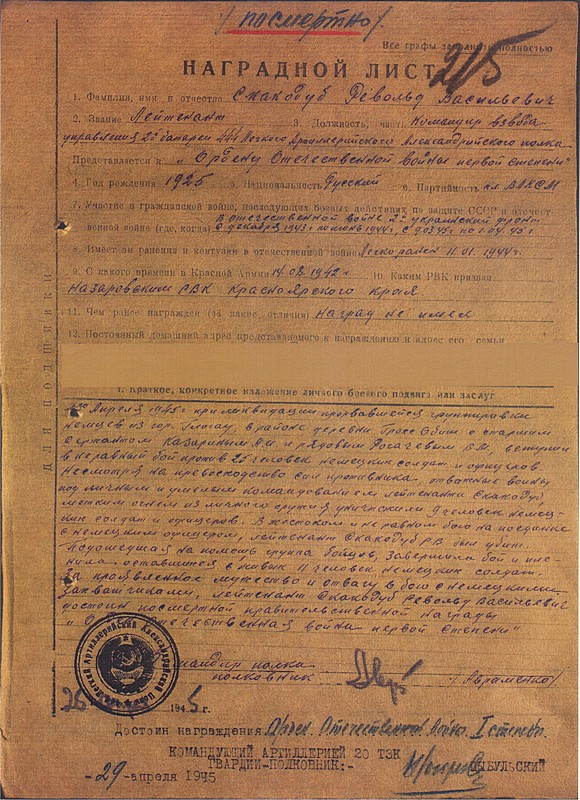 /посмертно/
Все графы заполнять полностью
215
НАГРАДНОЙ ЛИСТ
1. Фамилия, имя и отчество Скакодуб Револьд Васильевич
2. Звание Лейтенант 3. Должность, часть Командир взвода
управления 2й батареи 441 Легкого Артиллерийского Александрийского полка
Представляется к „Ордену Отечественной войны первой степени"
4. Год рождения 1925 5. Национальность Русский 6. Партийность чл ВЛКСМ
7. Участие в гражданской войне, последующих боевых действиях по защите СССР и отечест-
В отечественной войне 2й украинский фронт
венной войне (где, когда) с декабря 1943 г по июнь 1944 г, с
8. Имеет ли ранения и контузии в отечественной войне Легко ранен 11.01.1944 г.
9. С какого времени в Красной Армии 14.08.1942 г 10. Каким РВК призван
Назаровским РВК Красноярского края
11. Чем ранее награжден (за какие отличия) наград не имел
12. Постоянный домашний адрес представляемого к награждению и адрес его семьи
ДЛЯ ПОДШИВКИ
I. Краткое, конкретное изложение личного боевого подвига или заслуг
Апреля 1945 г при ликвидации прорвавшейся группировки
немцев из гор. Глогау, в районе деревни Гросс Обиш с старшим
сержантом Казариным А.И и рядовым Рогачевым В.М, вступил
в неравный бой против 25 человек немецких солдат и офицеров.
Несмотря на превосходство сил противника, отважные воины
под личным и умелым командованием лейтенанта Скакодуб,
метким огнем из личного оружия уничтожили 9 человек немец-
ких солдат и офицеров. В жестоком и неравном бою на поединке
с немецким офицером, лейтенант Скакодуб Р.В был убит.
Подошедшая на помощь группа бойцов, завершила бой и пле-
нила оставшихся в живых 11 человек немецких солдат.
За проявленное мужество и отвагу в бою с немецкими
захватчиками, лейтенант Скакодуб Револьд Васильевич
достоин посмертной правительственной награды
Отечественная война первой степени"
Командир полка
полковник /Авраменко/
26 1945 г.
Достоин награждения Орден. Отечественной война I степени.
КОМАНДУЮЩИЙ АРТИЛЛЕРИЕЙ 20 ТЭК
ГВАРДИИ-ПОЛКОВНИК:- ЦЫБУЛЬСКИЙ
-29-апреля 1945